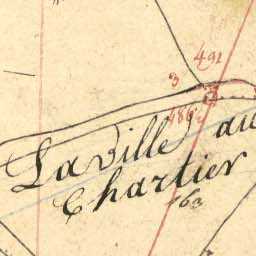 491
3
486
La Ville au
Chartier
163